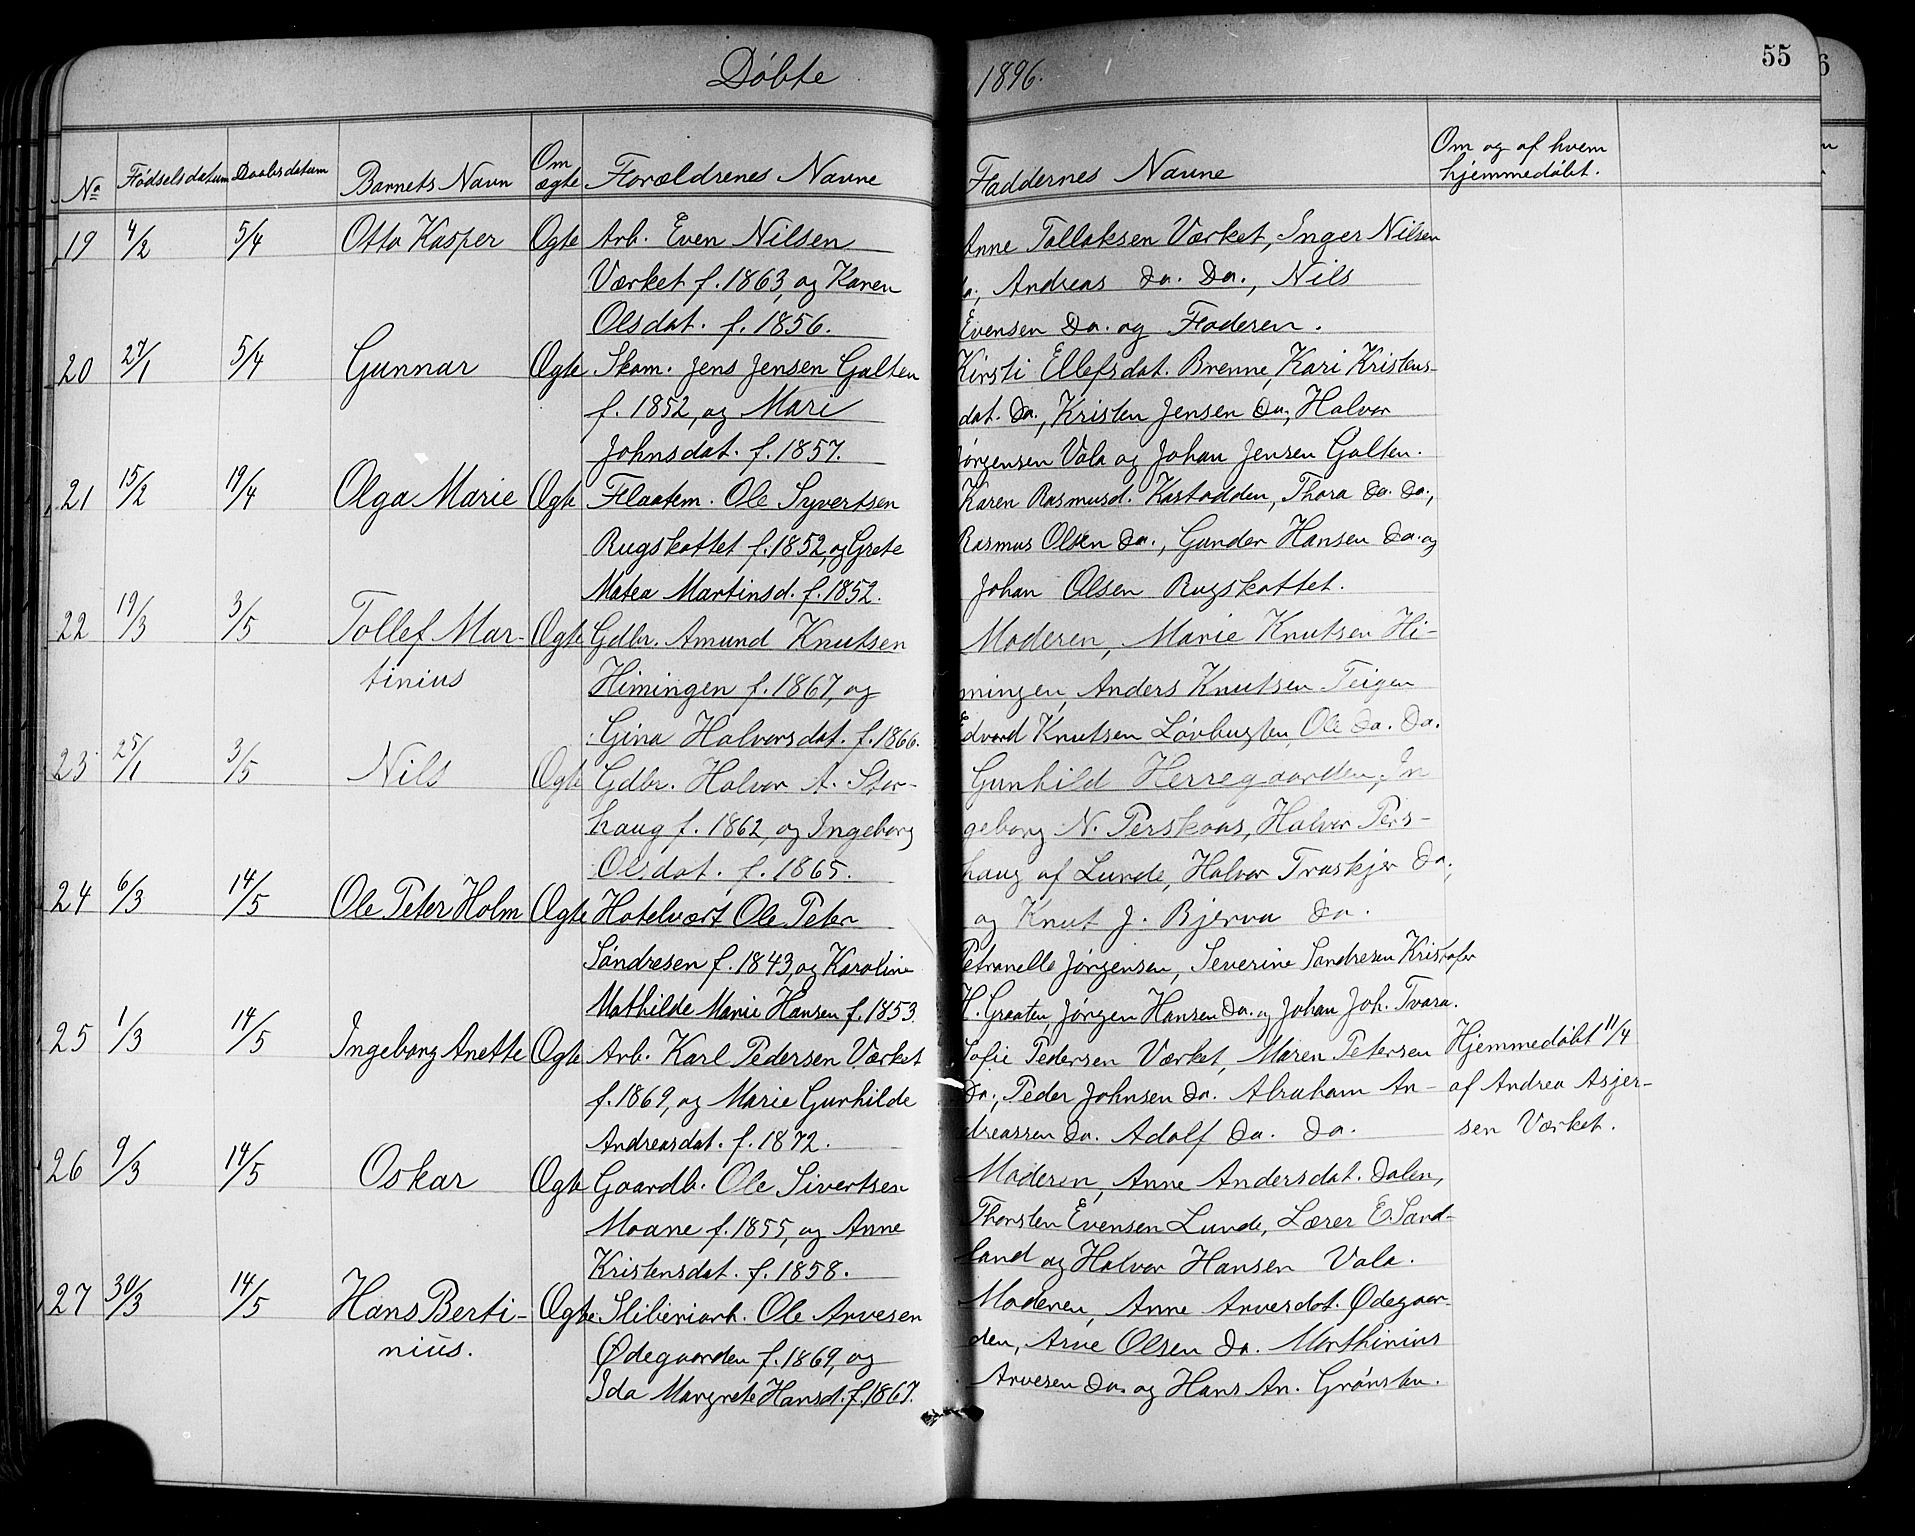 Døbte 1896. 55
No Fødselsdatum Daabsdatum Barnets Navn Om ægte Forældrenes Navne Faddernes Navne Om og af hvem hjemmedøbt.
19 4/2 5/4 Otto Kasper Ægte Arb. Even Nilsen Anne Tollaksen Værket, Inger Nilsen
Værket f. 1863, og Karen Do., Andreas Do. Do., Nils
Olsdat. f. 1856. Evensen Do. og Faderen.
20 27/1 5/4 Gunnar Ægte Skom. Jens Jensen Galten Kirsti Ellefsdat. Brenne, Kari Kristens-
f. 1852, og Mari dat. Do., Kristen Jensen Do., Halvor
Johnsdat. f. 1857. Jørgensen Vala og Johan Jensen Galten.
21 15/2 19/4 Olga Marie Ægte Flaatem. Ole Syvertsen Karen Rasmusd. Kastodden, Thora Do. Do.,
Rugskottet f. 1852, og Grete Rasmus Olsen Do., Gunder Hansen Do. og
Matea Martinsd. f. 1852. Johan Olsen Rugskottet.
22 19/3 3/5 Tollef Mar- Ægte Gdbr. Amund Knutsen Moderen, Marie Knutsen Hi-
tinius Himingen f. 1867, og mingen, Anders Knutsen Teigen
Gina Halvorsdat. f. 1866. Edvard Knutsen Løvhugten, Ole Do. Do.
23 25/1 3/5 Nils Ægte Gdbr. Halvor A. Stor- Gunhild Herregaarden, In
haug f. 1862, og Ingeborg geborg N. Perskaas, Halvor Pers-
Olsdat. f. 1865. haug af Lunde, Halvor Traskjer Do.,
24 6/3 14/5 Ole Peter Holm Ægte Hotelvært Ole Peter og Knut J. Bjerva Do.
Søndresen f. 1843, og Karoline Petronelle Jørgensen, Severine Sondresen Kristofer
Mathilde Marie Hansen f. 1853. H. Graaten, Jørgen Hansen Do. og Johan Joh. Tvara.
25 1/3 14/5 Ingeborg Anette Ægte Arb. Karl Pedersen Værket Sofie Pedersen Værket, Maren Petersen Hjemmedøbt 11/4
f. 1869, og Marie Gunhilde Do., Peder Johnsen Do. Abraham An- af Andrea Asjer-
Andreasdat. f. 1872. dreassen Do. Adolf Do. Do. sen Værket.
26 9/3 14/5 Oskar Ægte Gaardb. Ole Sivertsen Moderen, Anne Andersdat. Dalen,
Moane f. 1855, og Anne Thorsten Evensen Lunde, Lærer E. Sand-
Kristensdat. f. 1858. land og Halvor Hansen Vala.
27 30/3 14/5 Hans Berti- Ægte Sliberiarb. Ole Arvesen Moderen, Anne Arvesdat. Ødegaar-
nius. Ødegaarden f. 1869, og den, Arve Olsen Do. Marthinius
Ida Margrete Hansd. f. 1867. Arvesen Do. og Hans An. Grønsten.